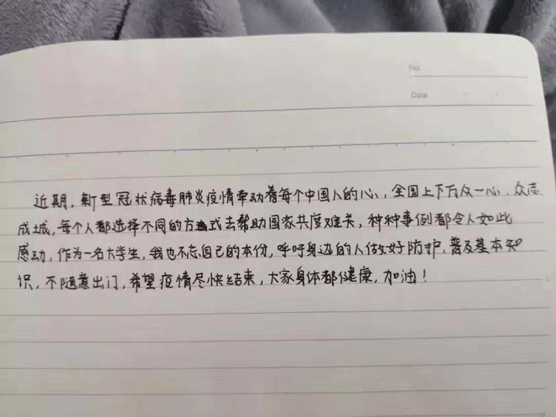 No.
Date
近期，新型冠状病毒肺炎疫情牵动着每个中国人的心，全国上下万众一心，众志
成城，每个人都选择不同的方式去帮助国家共度难关，种种事例都令人如此
感动，作为一名大学生，我也不忘自己的本份，呼吁身边的人做好防护，普及基本知
识，不随意出门，希望疫情尽快结束，大家身体都健康，加油！